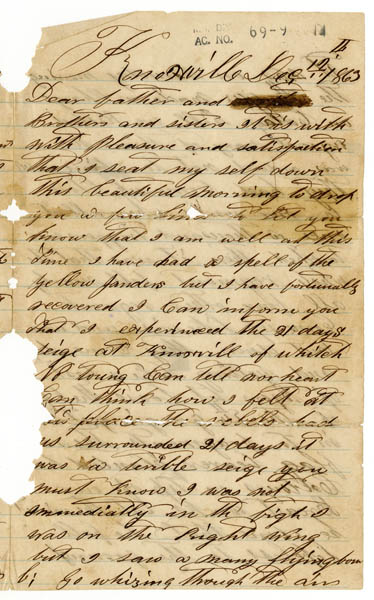 AC. NO. 69-9
Knoxvill Dec 1863
Dear father and
Brothers and sisters It is with
with pleasure and satisfaction
that I seat my self down
this beautiful morning to drop
you a few to let you
know that I am well at this
time I have had a spell of the
yellow Janders but I have fortunatly
recovered I Can inform you
that I experienced the 21 days
seige at Knoxvill of whitch
toung Can tell nor heart
Can think how I felt at
this place the rebels had
us surrounded 21 days it
was a terible seige you
must know I was not
immediatly in the fight I
was on the Right wing
but I saw a many flying bom
b; Go whizing though the Air